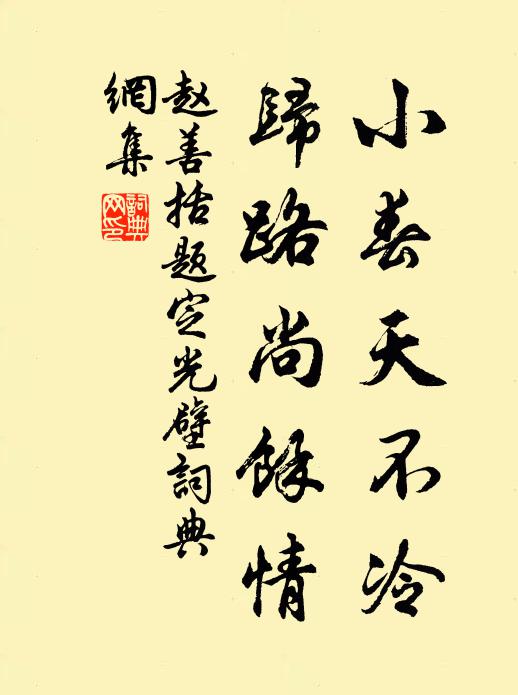 小春天不冷
歸路尚餘情
赵善括題定光壁詞典
網集
詞典
网印